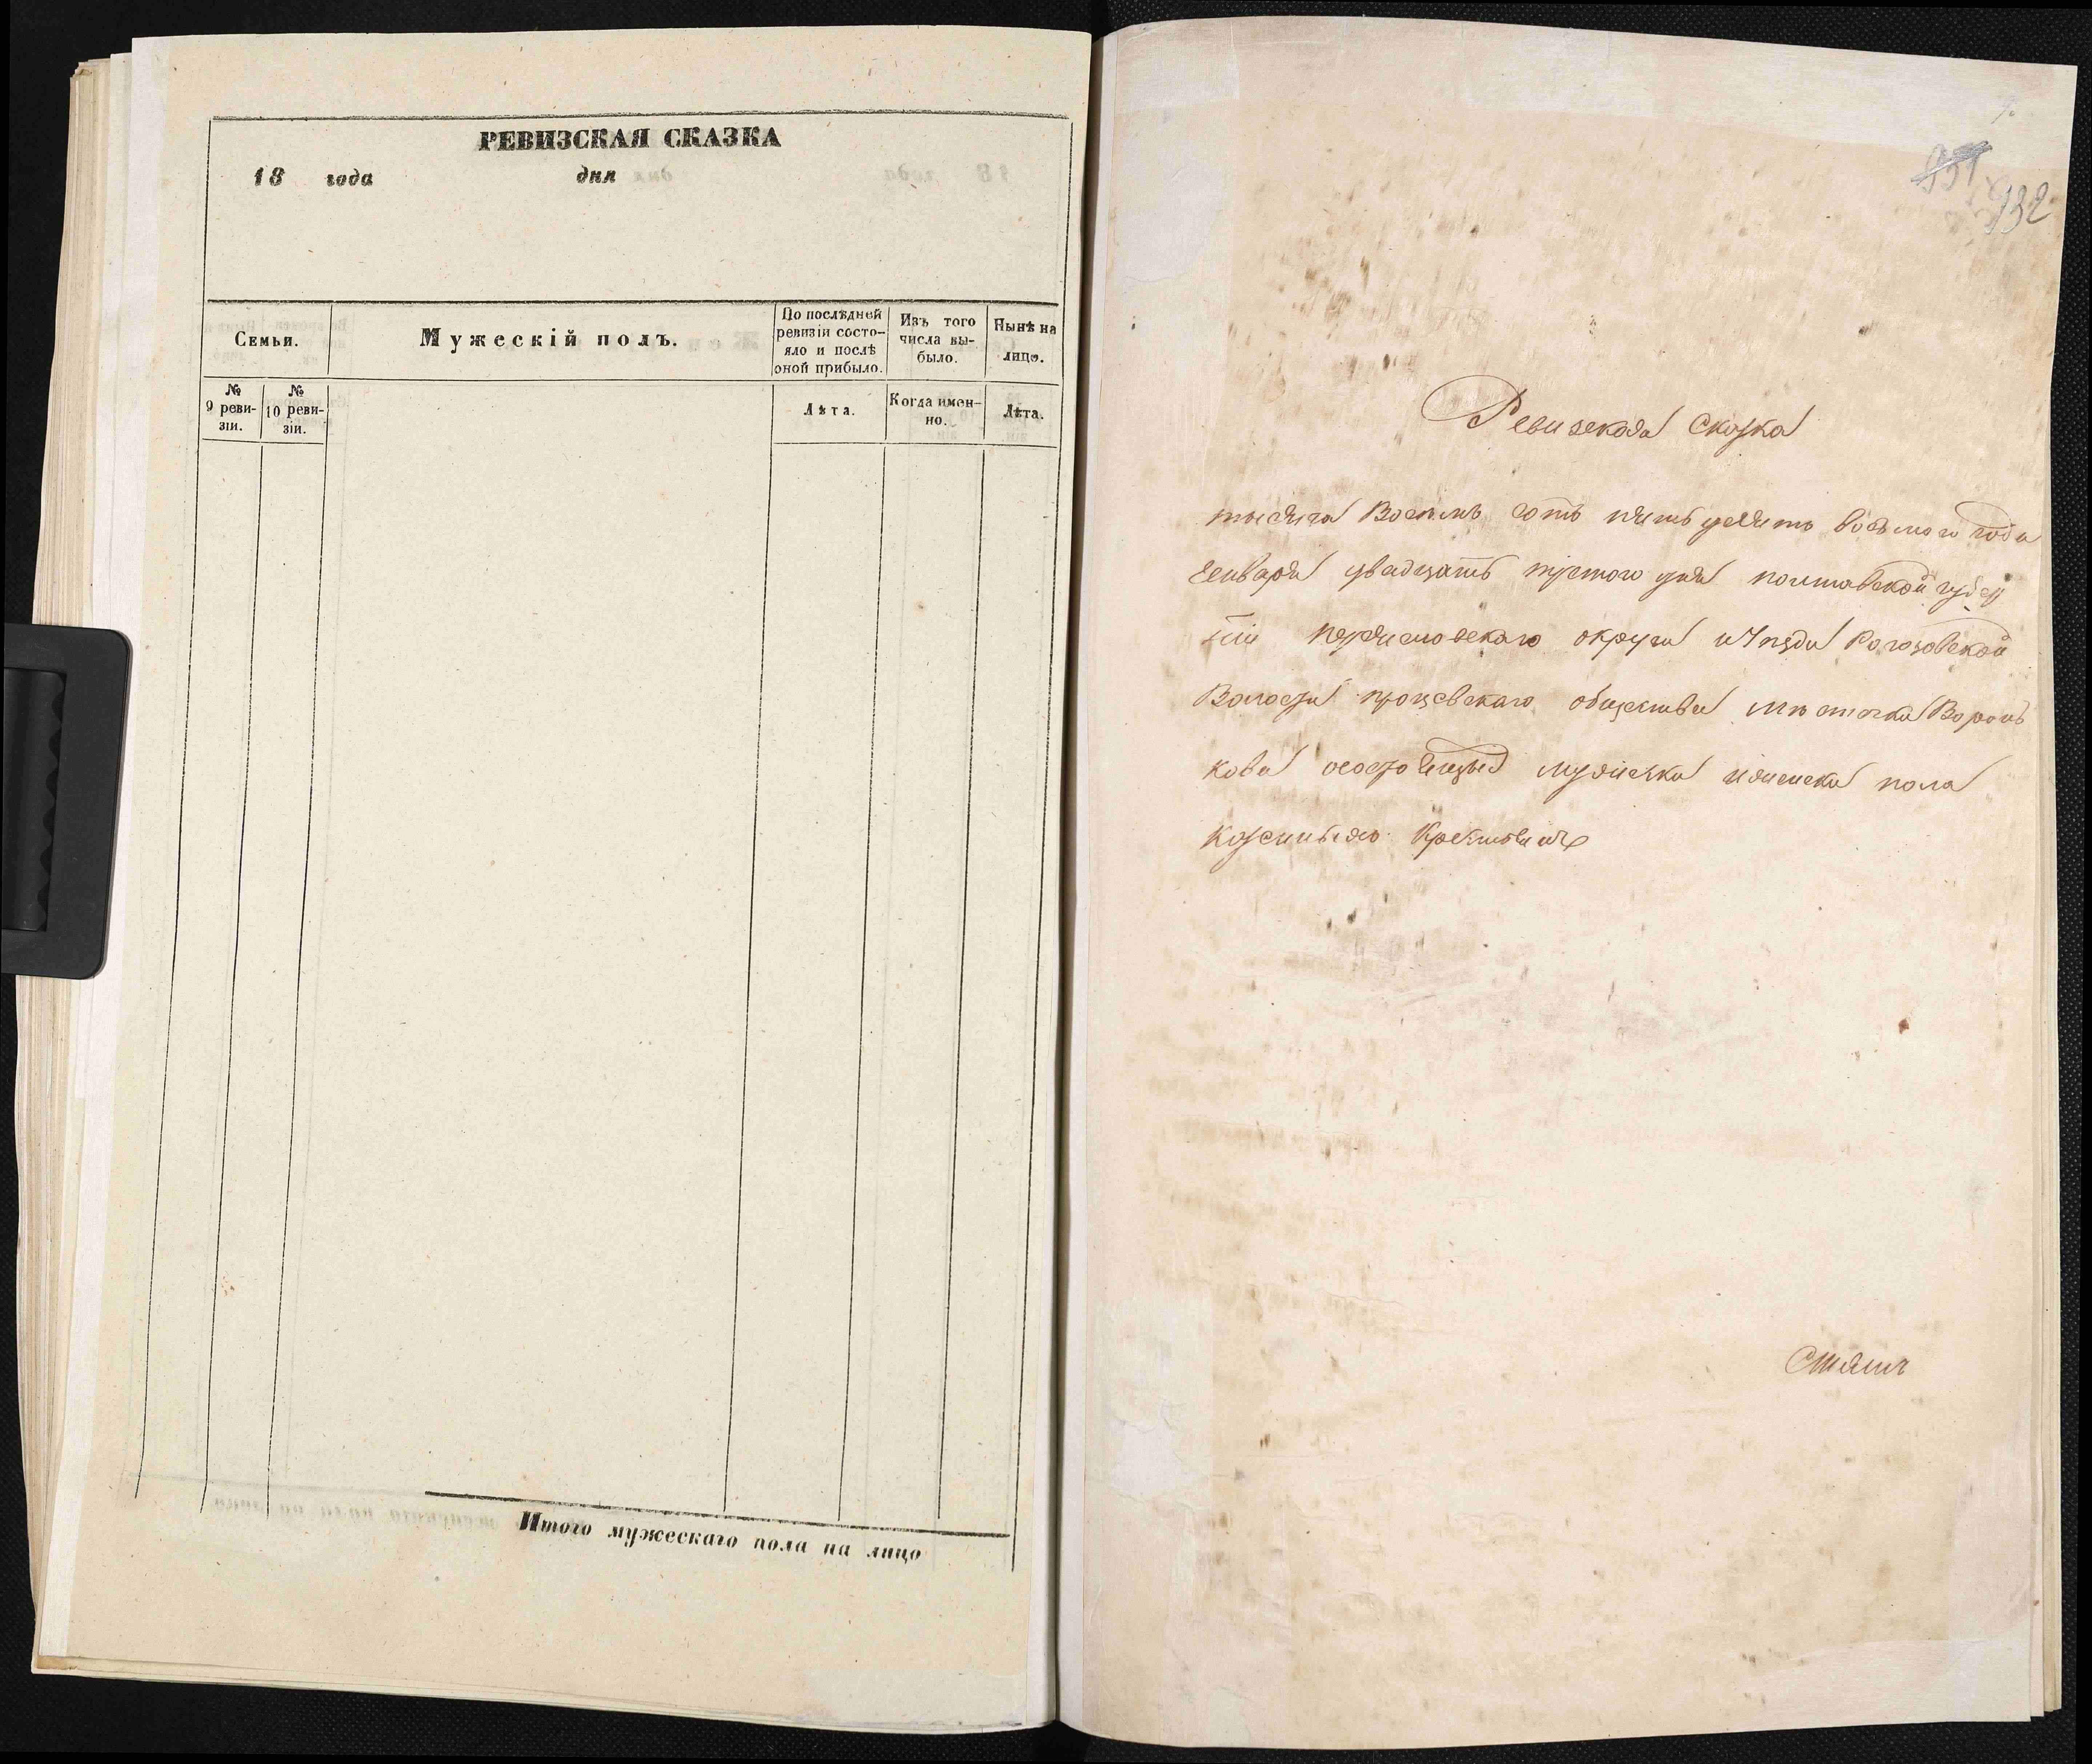 РЕВИЗСКАЯ СКАЗКА
18 года дня
Семьи.
Мужескій полъ.
По послѣдней
ревизіи состо-
яло и послѣ
оной прибыло.
Изъ того
числа вы-
было.
Нынѣ на
лицо.
№
9 реви-
зіи.
№
10 реви-
зіи.
Лѣта.
Когда имен-
но.
Лѣта.
Итого мужескаго пола на лицо
931
932
Ревизская Сказка
тысяча Восемь сотъ пять десять восьмого года
Генваря двадцать третого дня полтавской губер
ніи переяславскаго округа и Уезда Рогозовской
Волости процевскаго общества мѣстечка Воронь
кова о состоящыхъ мужеска и женска пола
козенныхъ Крестьянъ